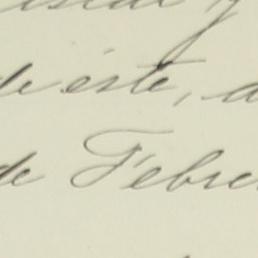 de éste, a
de Febre